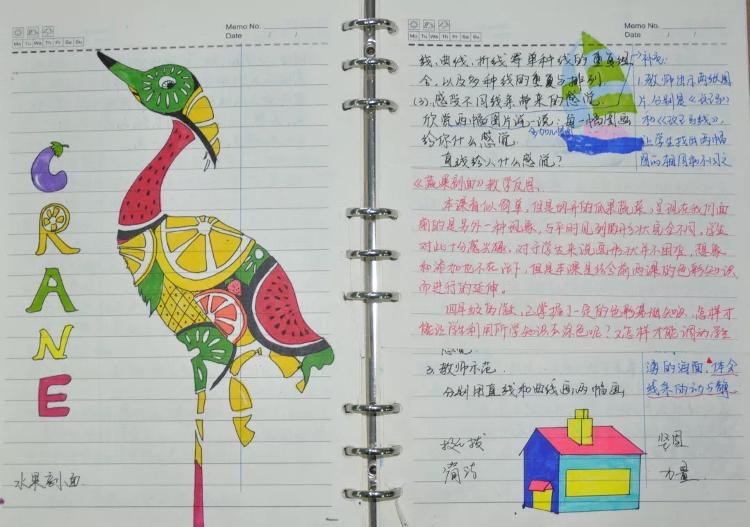 Memo No.
Date / /
Mo Tu We Th Fr Sa Su
CRANE
水果剖面
Memo No.
Date / /
Mo Tu We Th Fr Sa Su
线、曲线、折线等单种线的重复组
合,以及多种线的重复与排列.
(3).感受不同线条带来的感觉.
欣赏两幅图片说一说:每一幅图画
给你什么感觉.
直线给人什么感觉?
补充:
1.教师出示两张图
片,分别是
和
让学生找出两幅
图的相同和不同之
《蔬果剖面》教学反思.
本课看似简单,但是切开的瓜果蔬菜,呈现在我们面
前的是另外一种现象,与平时见到的形状完全不同.学生
对此十分感兴趣,对于学生来说画形状并不困难,想象
和添加也不在话下,但是本课是结合前两课的色彩知识
而进行的延伸.
四年级的学生,已掌握了一定的色彩基础知识,怎样才
能让学生利用所学知识去涂色呢?又怎样才能调动学生
感觉.
3.教师示范.
分别用直线和曲线画两幅画
满的画面,体会
线条的动与静
挺拔
简洁
坚固
力量